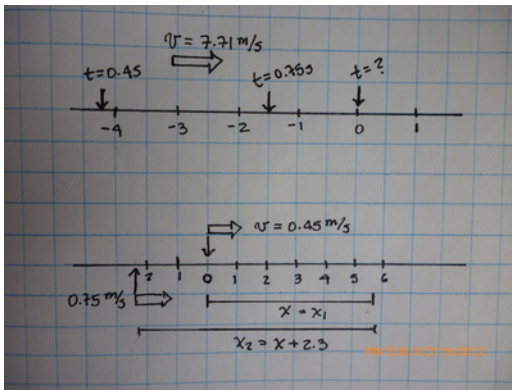 v = 7.71 m/s
t=0.4s t=0.75s t=?
-4 -3 -2 -1 0 1
v = 0.45 m/s
2 1 0 1 2 3 4 5 6
0.75 m/s
x = x₁
x₂ = x + 2.3